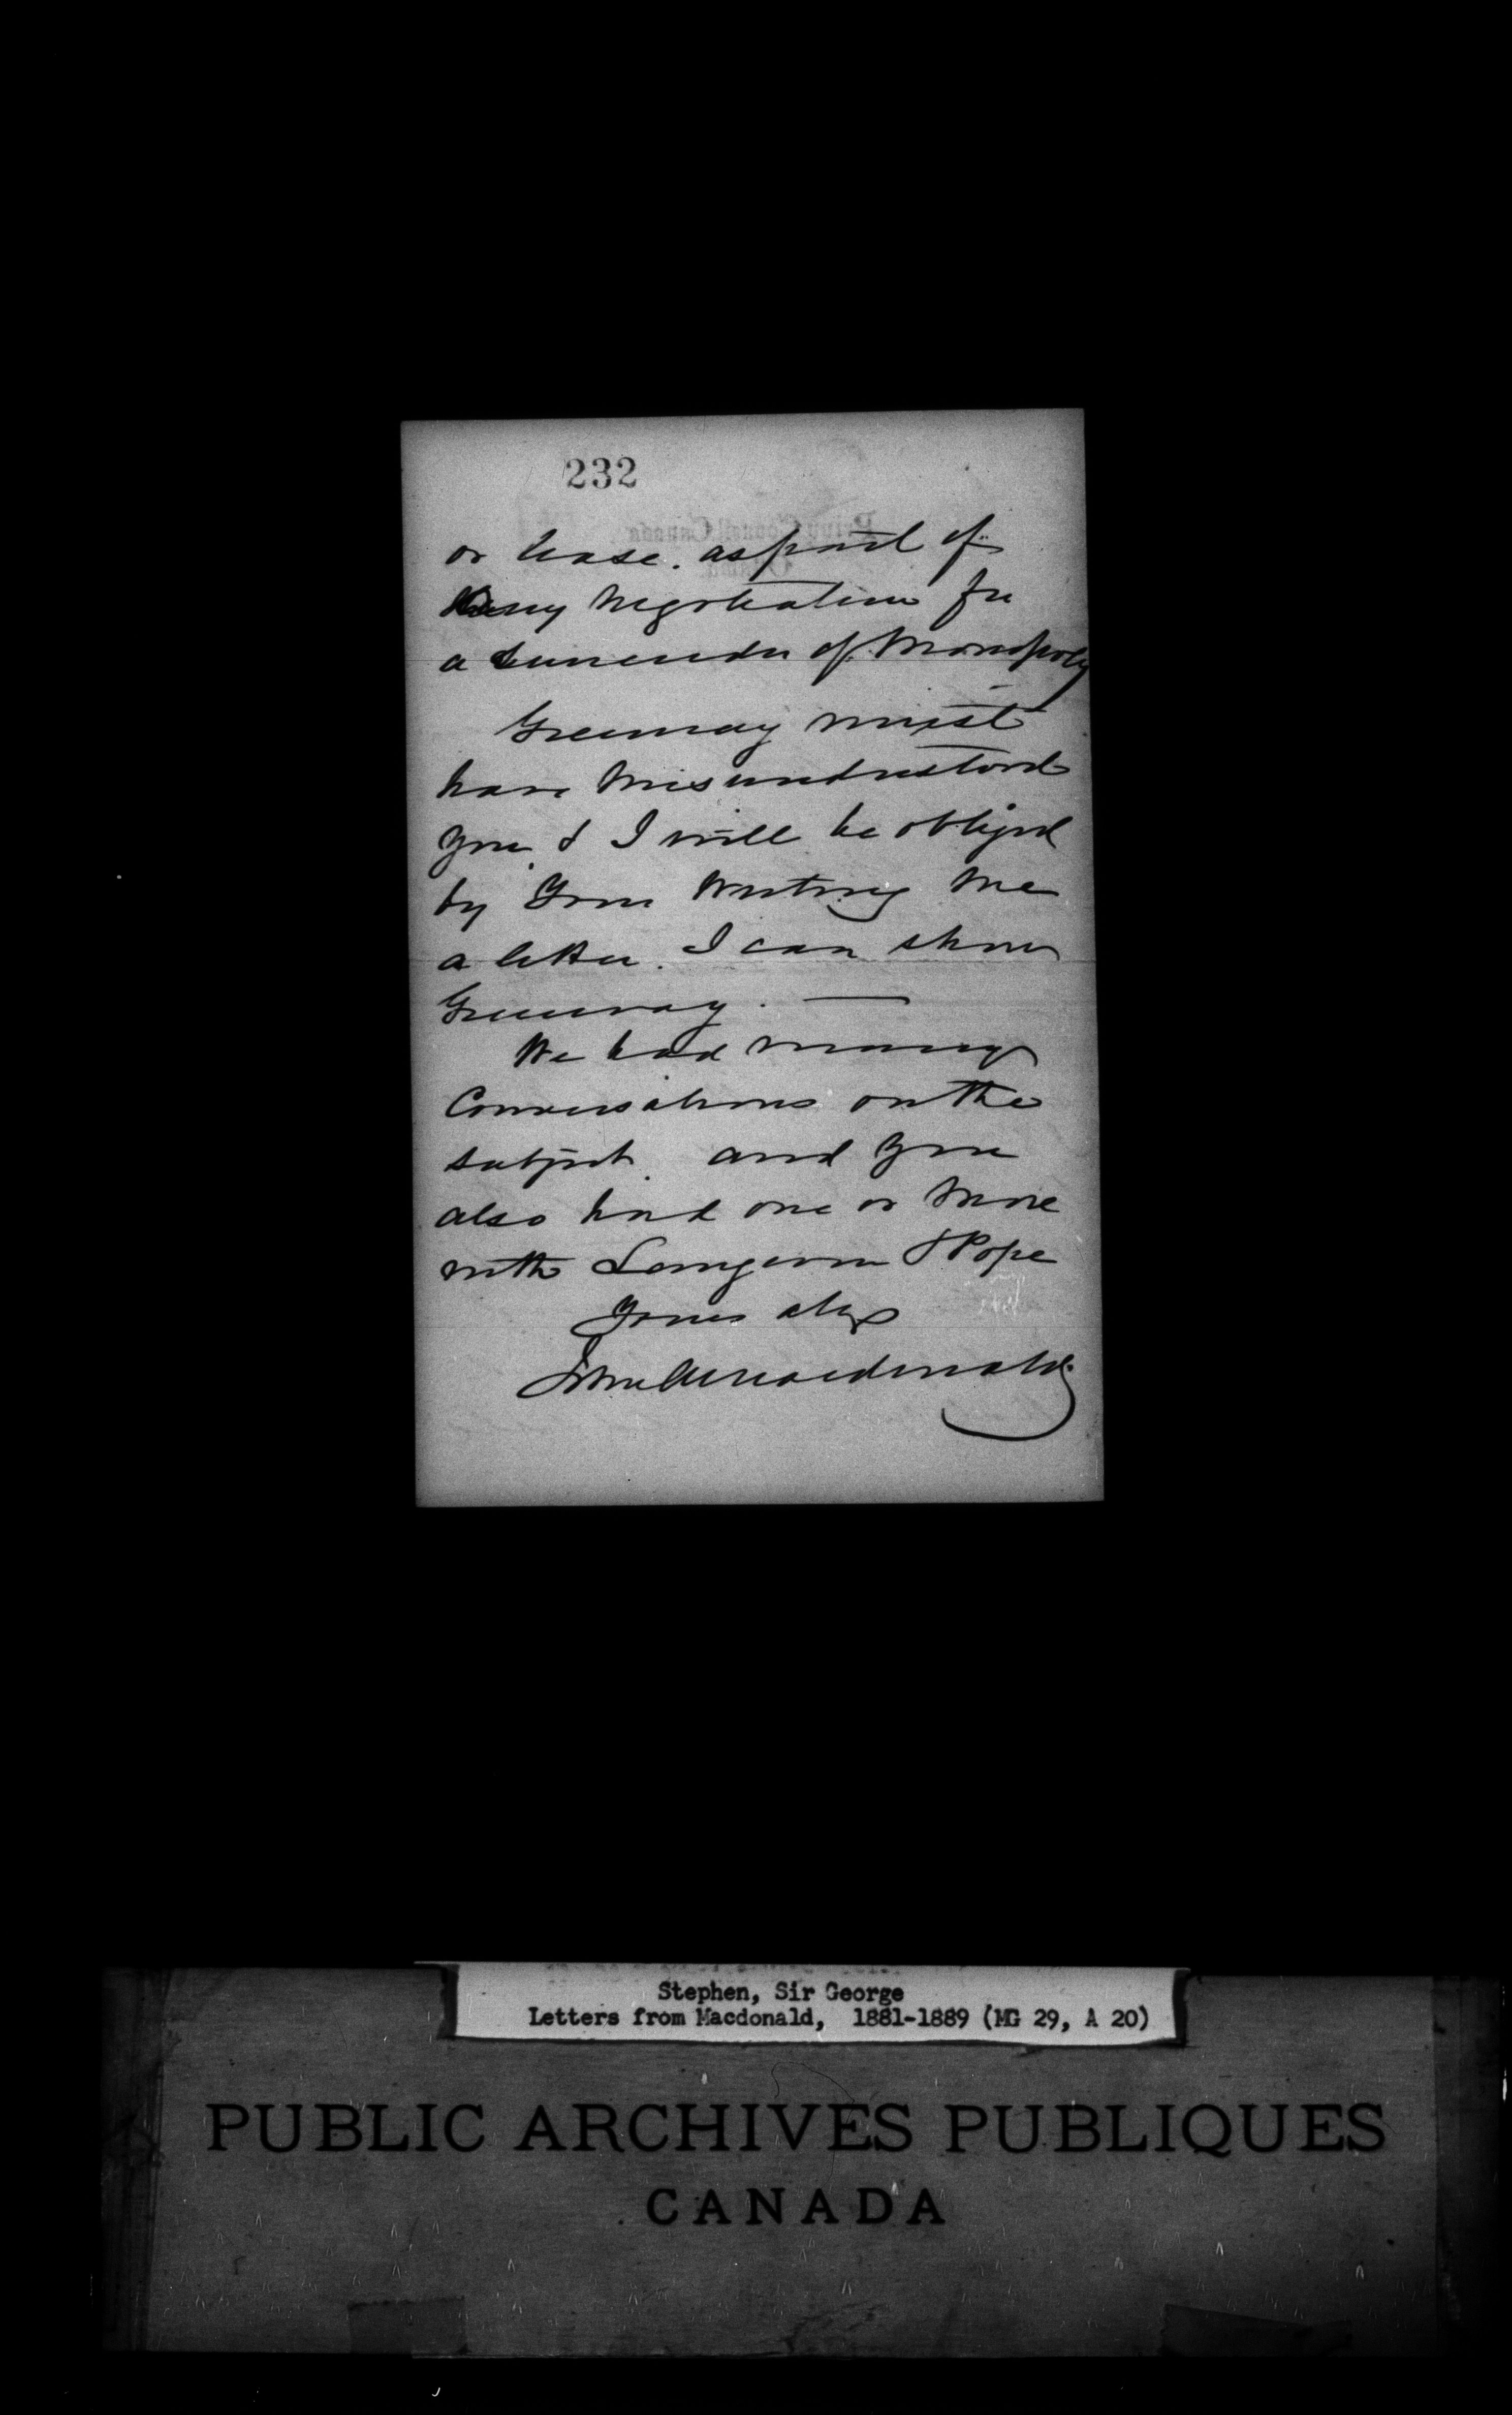 232
or lease. as part of
any negotiation for
a surrender of Monopoly
Greenway must
have misunderstood
you, & I will be obliged
by your writing me
a letter. I can show
Greenway. —
We had many
Conversations on the
subject. and you
also had one or more
with Langevin & Pope
Yours alwys
John A Macdonald
Stephen, Sir George
Letters from Macdonald, 1881-1889 (MG 29, A 20)
PUBLIC ARCHIVES PUBLIQUES
CANADA